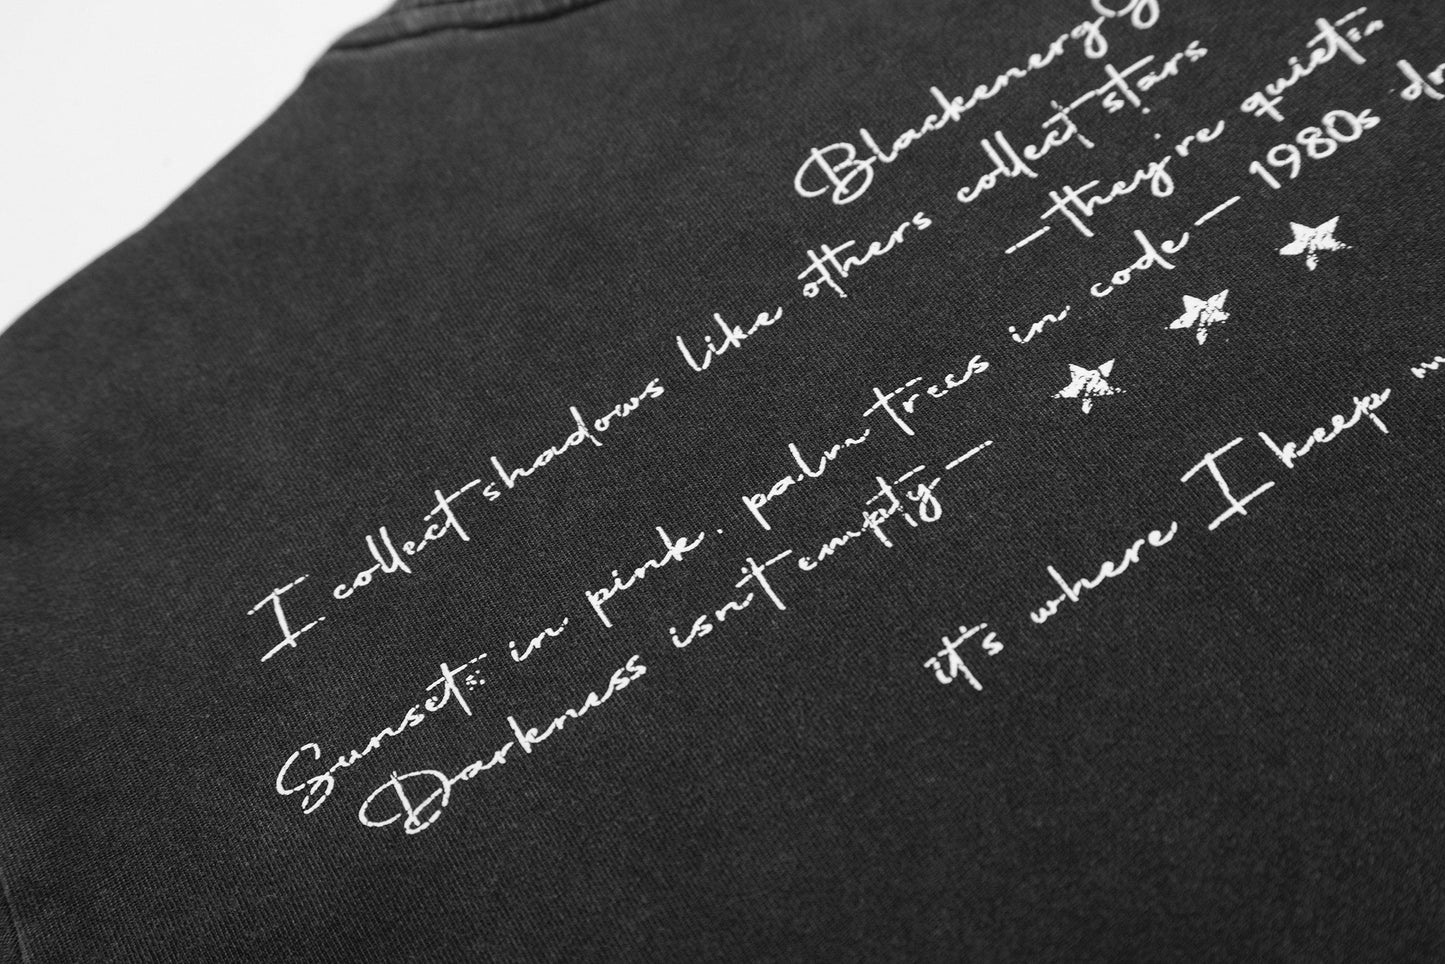 BlackenergY
I collect shadows like others collect stars
—they're quiet
Sunsets in pink. palm trees in code — 1980s
Darkness isn't empty —
it's where I keep